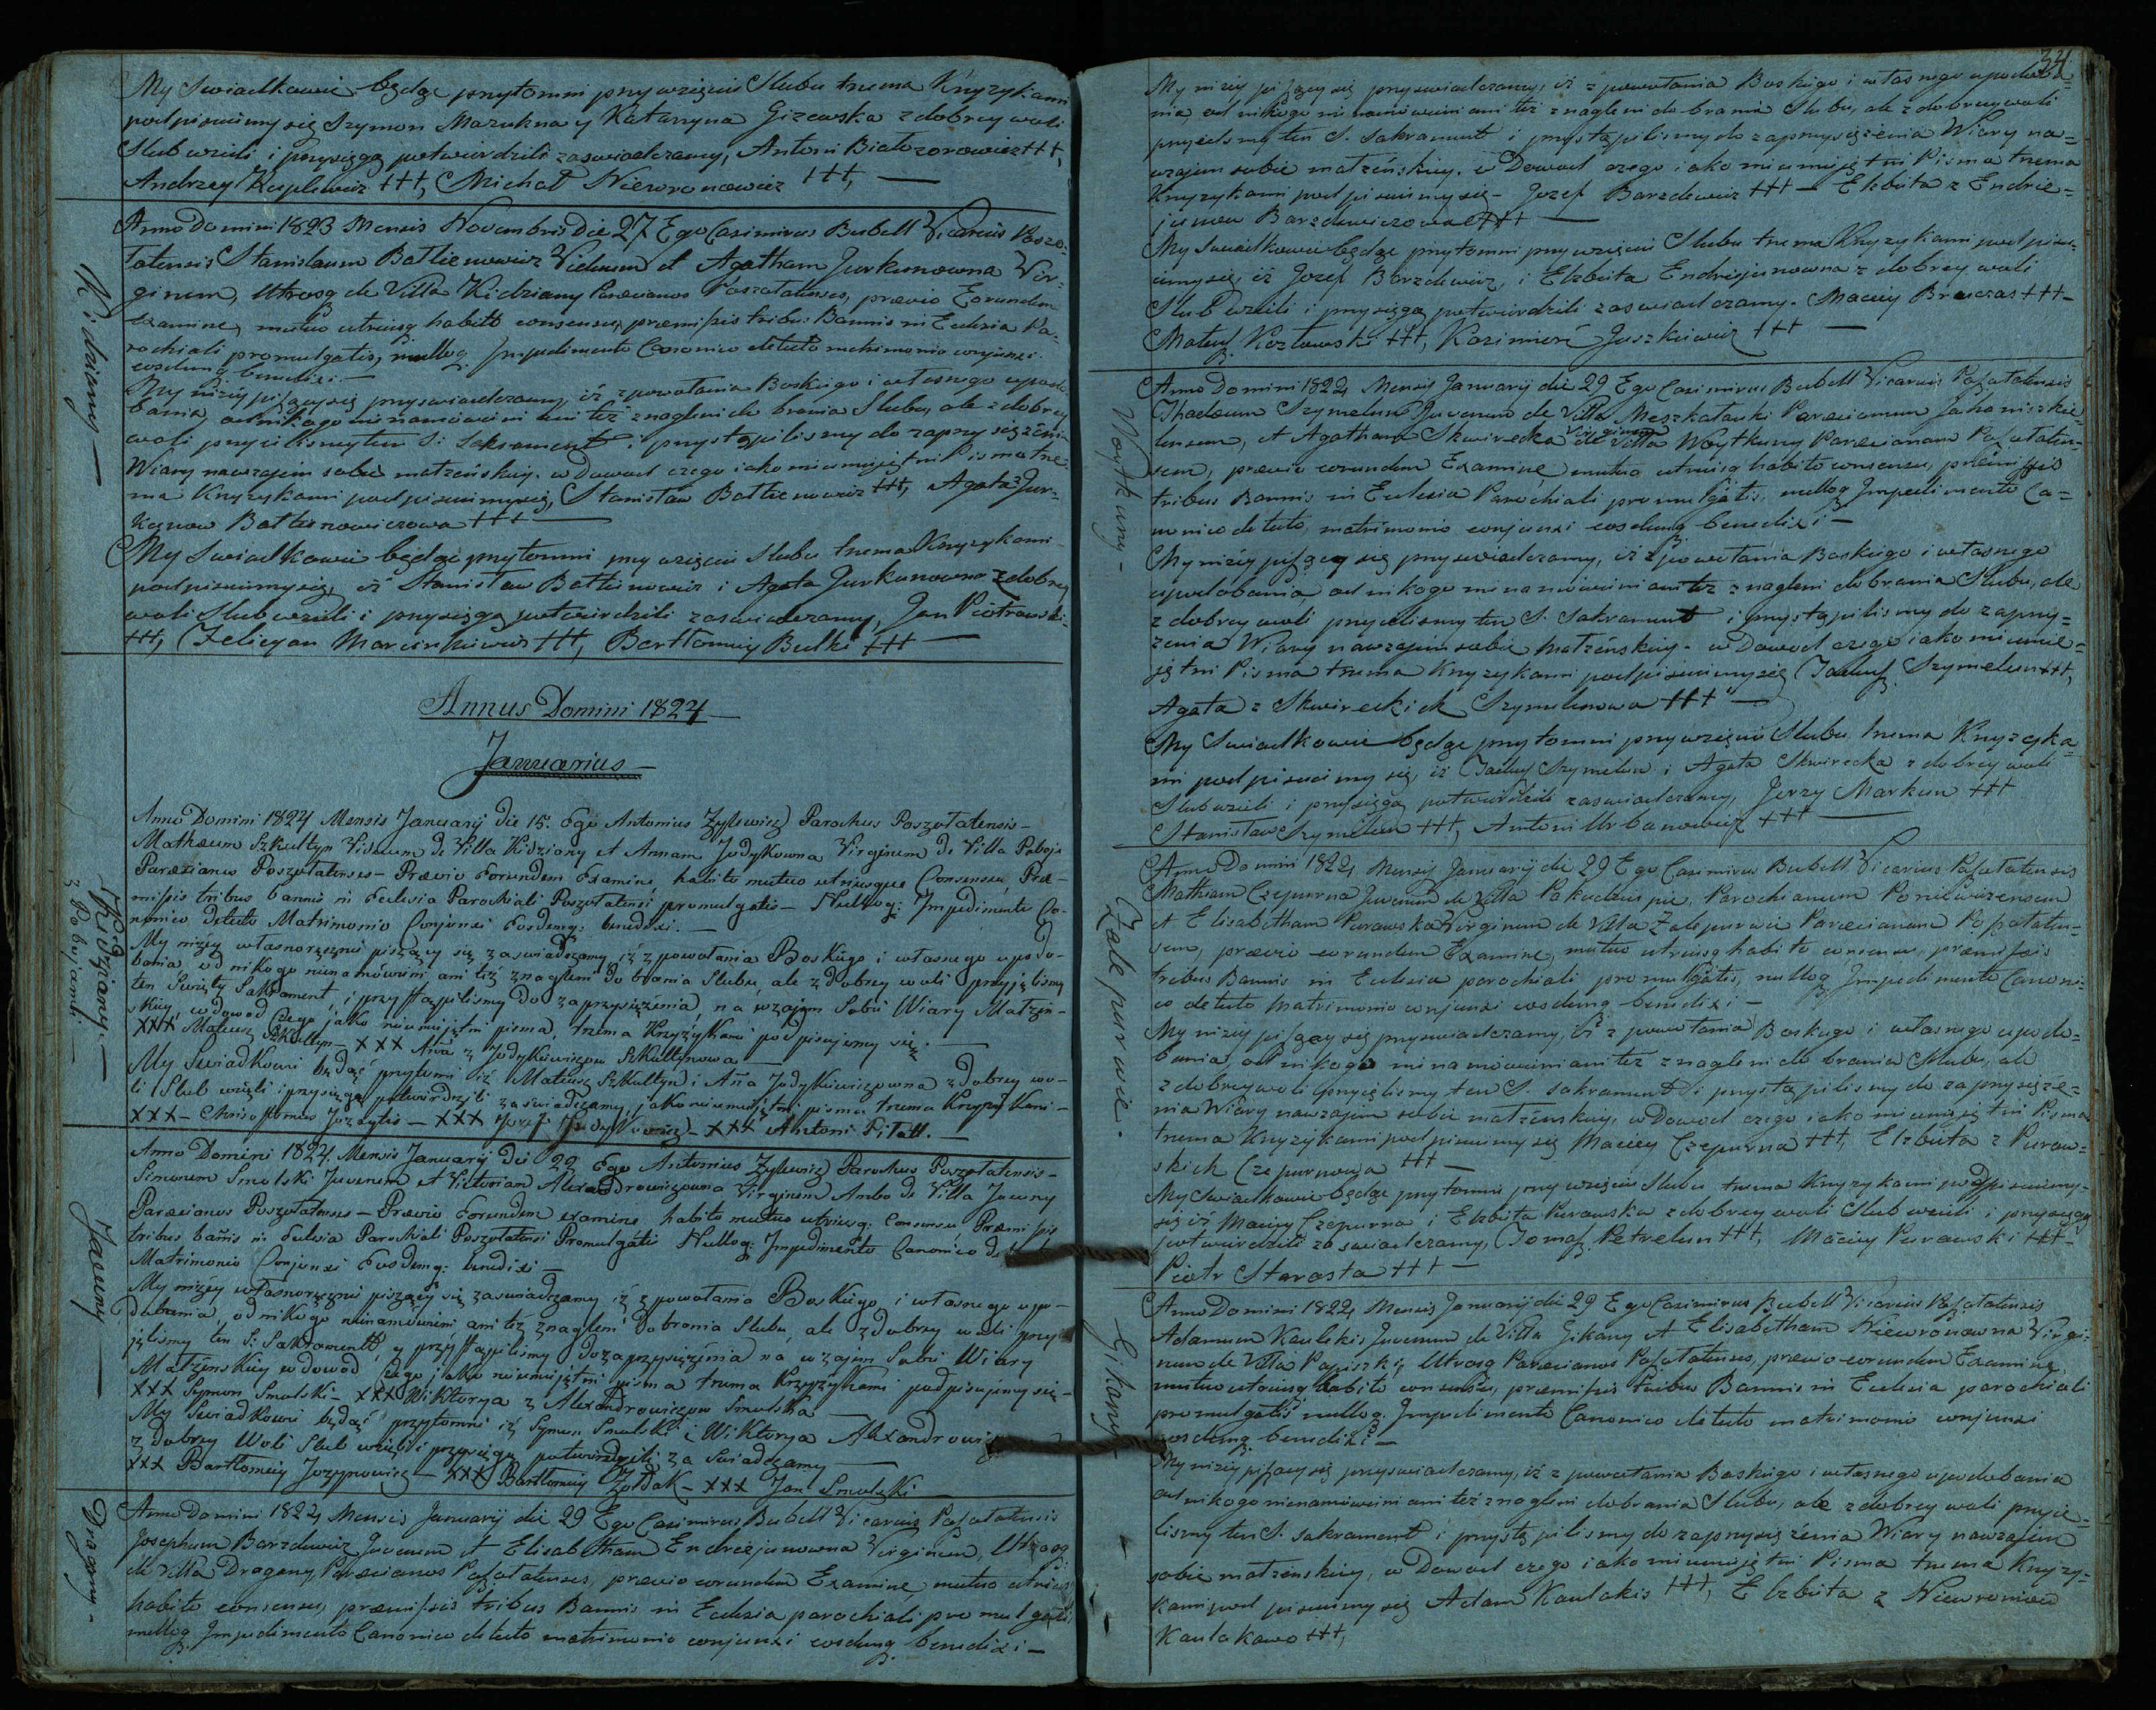 My Swiadkowie będąc przytomni przy wzięciu Slubu trzema Krzyzykami
podpisuiemy się Szymon Mazukna y Katarzyna Gizewska z dobrey woli
Slub wzieli i przysięgą potwierdzili zaswiadczamy, Antoni Białozorowicz +++,
Andrzey Kuplewicz +++, Michał Niewronowicz +++, —
Kidziany —
Anno Domini 1823 Mensis Novembris Die 27 Ego Casimirus Bubell Vicarius Poszo-
łatensis Stanislaum Batlienowicz Viduum et Agatham Jurkunowna Vir-
ginem, Utrosq de Villa Kidziany Paræcianos Poszołatenses, prævio Eorundem
Examine, mutuo utriusq habito consensu, præmissis tribus Bannis in Eclesia Pa-
rochiali promulgatis, nulloq Impedimento Canonico detecto matrimonio conjunxi
eosdemq benedixi.—
My niżey piszący się przyswiadczamy, iż z powołania Boskiego i własnego upodo-
bania, od nikogo nienamówieni ani też znagleni do brania Slubu, ale z dobrey
woli przyielismy ten S: Sakrament i przystąpilismy do zaprzysięzenia
Wiary nawzajem sobie matżeńskiey. w Dowod czego iako nieumieiętni Pisma trze-
ma Krzyzykami podpisuiemy się, Stanisław Batlienowicz +++, Agata z Jur-
kunow Batlienowiczowa +++ —
My Swiadkowie będąc przytomni przy wzięciu Slubu trzema Krzyzykami
podpisuiemy się, iż Stanisław Batlienowicz i Agata Jurkunowna z dobrey
woli Slub wzieli i przysięgą potwierdzili zaswiadczamy, Jan Piotrowski
+++, Felicyan Marcinkiewicz +++, Bartłomiey Bulki +++ —
Annus Domini 1824 —
Januarius —
Kidziany —
z Pobojami —
Anno Domini 1824 Mensis Januarij Die 15. Ego Antonius Zylewicz Parochus Poszołatensis —
Mathæum Szkultyn Viduum de Villa Kidziany et Annam Jodykowna Virginem de Villa Poboje
Paræcianos Poszołatenses — Prævio Eorundem Examine, habito mutuo utriusque Consensu, Præ-
missis tribus bannis in Eclesia Parochiali Poszołatensi promulgatis — Nulloq: Impedimento Ca-
nonico detecto Matrimonio Conjunxi Eosdemq: benedixi. —
My niżey własnoręcznie piszący się zaswiadczamy iż z powołania Boskiego i własnego upodo-
bania, od nikogo nienamówieni ani też znagleni do brania Slubu, ale z Dobrey woli przyjęlismy
ten Swięty Sakrament, i przystąpilismy Do zaprzysiężenia, na wzajem Sobie Wiary Małżeń-
skiey, w dowod Czego jako nieumiejętni pisma, trzema Krzyżykami podpisujemy się —
XXX Mateusz Szkultyn — XXX Anna z Jodykiewiczow Szkultynowa —
My Swiadkowie będąć przytomni iż Mateusz Szkultyn i Anna Jodykiewiczowna z Dobrey wo-
li Slub wzięli i przysięgą potwierdzili zaswiadczamy, jako nieumiejętni pisma trzema Krzyżykami —
XXX — Chrisostomus Jozytis — XXX Jozef Jodykiewicz — XXX Antoni Pitall. —
Jasiuny —
Anno Domini 1824 Mensis Januarij Die 22 Ego Antonius Zylewicz Parochus Poszołatensis —
Simonem Smolski Juvenem et Victoriam Alexandrowiczowna Virginem Ambo de Villa Jawny
Paræcianos Poszołatenses — Prævio Eorundem examine habito mutuo utriusq: Consensu, Præmissis
tribus bannis in Eclesia Parochiali Poszołatensi Promulgatis Nulloq: Impedimento Canonico de
Matrimonio Conjunxi Eosdemq: benedixi —
My niżey własnoręcznie piszący się zaswiadczamy iż z powołania Boskiego i własnego upo-
dobania, od nikogo nienamówieni ani też znagleni do brania Slubu, ale z Dobrey woli przy-
jęlismy ten S: Sakrament, y przystąpilismy do zaprzysiężenia na wzajem Sobie Wiary
Małżeńskiey w dowod Czego jako nieumiejętni pisma trzema Krzyżykami podpisujemy się —
XXX Symon Smolski — XXX Wiktorya z Alexandrowiczow Smolska —
My Swiadkowie będąć przytomni iż Symon Smolski i Wiktorya Alexandrowi
z dobrey Woli Slub wzięli i przysięgą potwierdzili za Swiadczamy —
XXX Bartłomiey Jozynowicz — XXX Bartłomiey Zołdak — XXX Jan Smolski —
Dragany —
Anno Domini 1824 Mensis Januarij die 29 Ego Casimirus Bubell Vicarius Poszołatensis
Josephum Barzdewicz Juvenem et Elisabetham Endrzejunowna Virginem, Utrosq
de Villa Dragany, Paræcianos Poszołatenses, prævio eorundem Examine, mutuo utriusq
habito consensu, præmissis tribus Bannis in Eclesia parochiali promulgatis,
nulloq. Impedimento Canonico detecto matrimonio conjunxi eosdemq benedixi —
34.
My niżey piszący się przyswiadczamy, iż z powołania Boskiego i własnego upodoba-
nia od nikogo nienamówieni ani też znagleni do brania Slubu, ale z dobrey woli
przyielismy ten S. Sakrament i przystąpilismy do zaprzysięzenia Wiary na-
wzajem sobie matżeńskiey. w Dowod czego iako nieumieiętni Pisma trzema
Krzyzykami podpisuiemy się — Jozef Barzdewicz +++ — Elzbieta z Endrze-
junow Barzdewiczowa +++ —
My Swiadkowie będąc przytomni przy wzięciu Slubu trzema Krzyzykami podpisu-
iemy się, iż Jozef Barzdewicz, i Elzbieta Endrzejunowna z dobrey woli
Slub wzieli i przysięgą potwierdzili zaswiadczamy. Maciey Brawzas +++ —
Mateusz Kozłowski +++, Kazimierz Juszkiewicz +++ —
Woytkuny —
Anno Domini 1824 Mensis Januarij die 29 Ego Casimirus Bubell Vicarius Poszołatensis
Thadæum Szymelun Juvenem de Villa Meszkałauki Paræcianum Johaniszkie-
lensem, et Agatham Skwirecka Virginem de Villa Woytkuny Paræcianam Poszołaten-
sem, prævio eorundem Examine, mutuo utriusq habito consensu, præmissis
tribus Bannis in Eclesia Parochiali promulgatis, nulloq Impedimento Ca-
nonico detecto, matrimonio conjunxi eosdemq benedixi —
My niżey piszący się przyswiadczamy, iż z powołania Boskiego i własnego
upodobania, od nikogo nienamówieni ani też znagleni do brania Slubu, ale
z dobrey woli przyielismy ten S. Sakrament i przystąpilismy do zaprzy-
zenia Wiary nawzajem sobie Matżeńskiey. w Dowod czego iako nieumie-
iętni Pisma trzema Krzyzykami podpisuiemy się Tadeusz Szymelun +++,
Agata z Skwireckich Szymelunowa +++ —
My Swiadkowie będąc przytomni przy wzięciu Slubu trzema Krzyzyka-
mi podpisuiemy się, iż Tadeusz Szymelun i Agata Skwirecka z dobrey woli
Slub wzieli i przysięgą potwierdzili zaswiadczamy, Jerzy Markun +++
Stanisław Szymelun +++, Antoni Urbanowicz +++ —
Zalepurwie.
Anno Domini 1824 Mensis Januarij die 29 Ego Casimirus Bubell Vicarius Poszołatensis
Mathiam Czepurna Juvenem de Villa Pakudziupie, Parochianum Poniewiezensem
et Elisabetham Purawska Virginem de Villa Zalepurwie Paræcianam Poszołaten-
sem, prævio eorundem Examine, mutuo utriusq habito consensu, præmissis
tribus Bannis in Eclesia parochiali promulgatis, nulloq Impedimento Canoni-
co detecto Matrimonio conjunxi eosdemq benedixi —
My niżey piszący się przyswiadczamy, iż z powołania Boskiego i własnego upodo-
bania od nikogo nienamówieni ani też znagleni do brania Slubu, ale
z dobrey woli przyielismy ten S. Sakrament i przystąpilismy do zaprzysięże-
nia Wiary nawzajem sobie matżeńskiey, w Dowod czego iako nieumieiętni Pisma
trzema Krzyzykami podpisuiemy się Maciey Czepurna +++, Elzbieta z Puraw-
skich Czepurnowa +++ —
My Swiadkowie będąc przytomni przy wzięciu Slubu trzema Krzyzykami podpisuiemy
się iż Maciey Czepurna i Elzbieta Purawska z dobrey woli Slub wzieli i przysięgą
potwierdzili zaswiadczamy, Tomasz Petrelun +++, Maciey Purawski +++ —
Piotr Starosta +++ —
Gikany —
Anno Domini 1824 Mensis Januarij die 29 Ego Casimirus Bubell Vicarius Poszołatensis
Adamum Kaulakis Juvenem de Villa Gikany et Elisabetham Niewronowna Virgi-
nem de Villa Papiszki, Utrosq Paræcianos Poszołatenses, prævio eorundem Examine,
mutuo utriusq habito consensu, præmissis tribus Bannis in Eclesia parochiali
promulgatis nulloq. Impedimento Canonico detecto matrimonio conjunxi
eosdemq benedixi —
My niżey piszący się przyswiadczamy, iż z powołania Boskiego i własnego upodobania
od nikogo nienamówieni ani też znagleni do brania Slubu, ale z dobrey woli przyie-
lismy ten S. Sakrament i przystąpilismy do zaprzysięzenia Wiary nawzajem
sobie matżeńskiey, w Dowod czego iako nieumieiętni Pisma trzema Krzyzy-
kami podpisuiemy się Adam Kaulakis +++, Elzbieta z Niewronow
Kaulakowa +++,